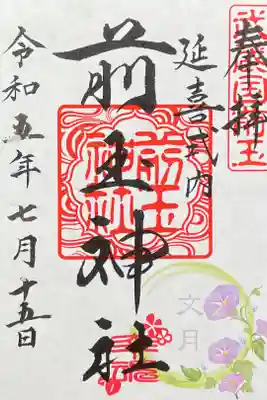 武蔵国埼玉
奉拝
延喜式内
前玉神社
前玉
神社
令和五年七月十五日
文月